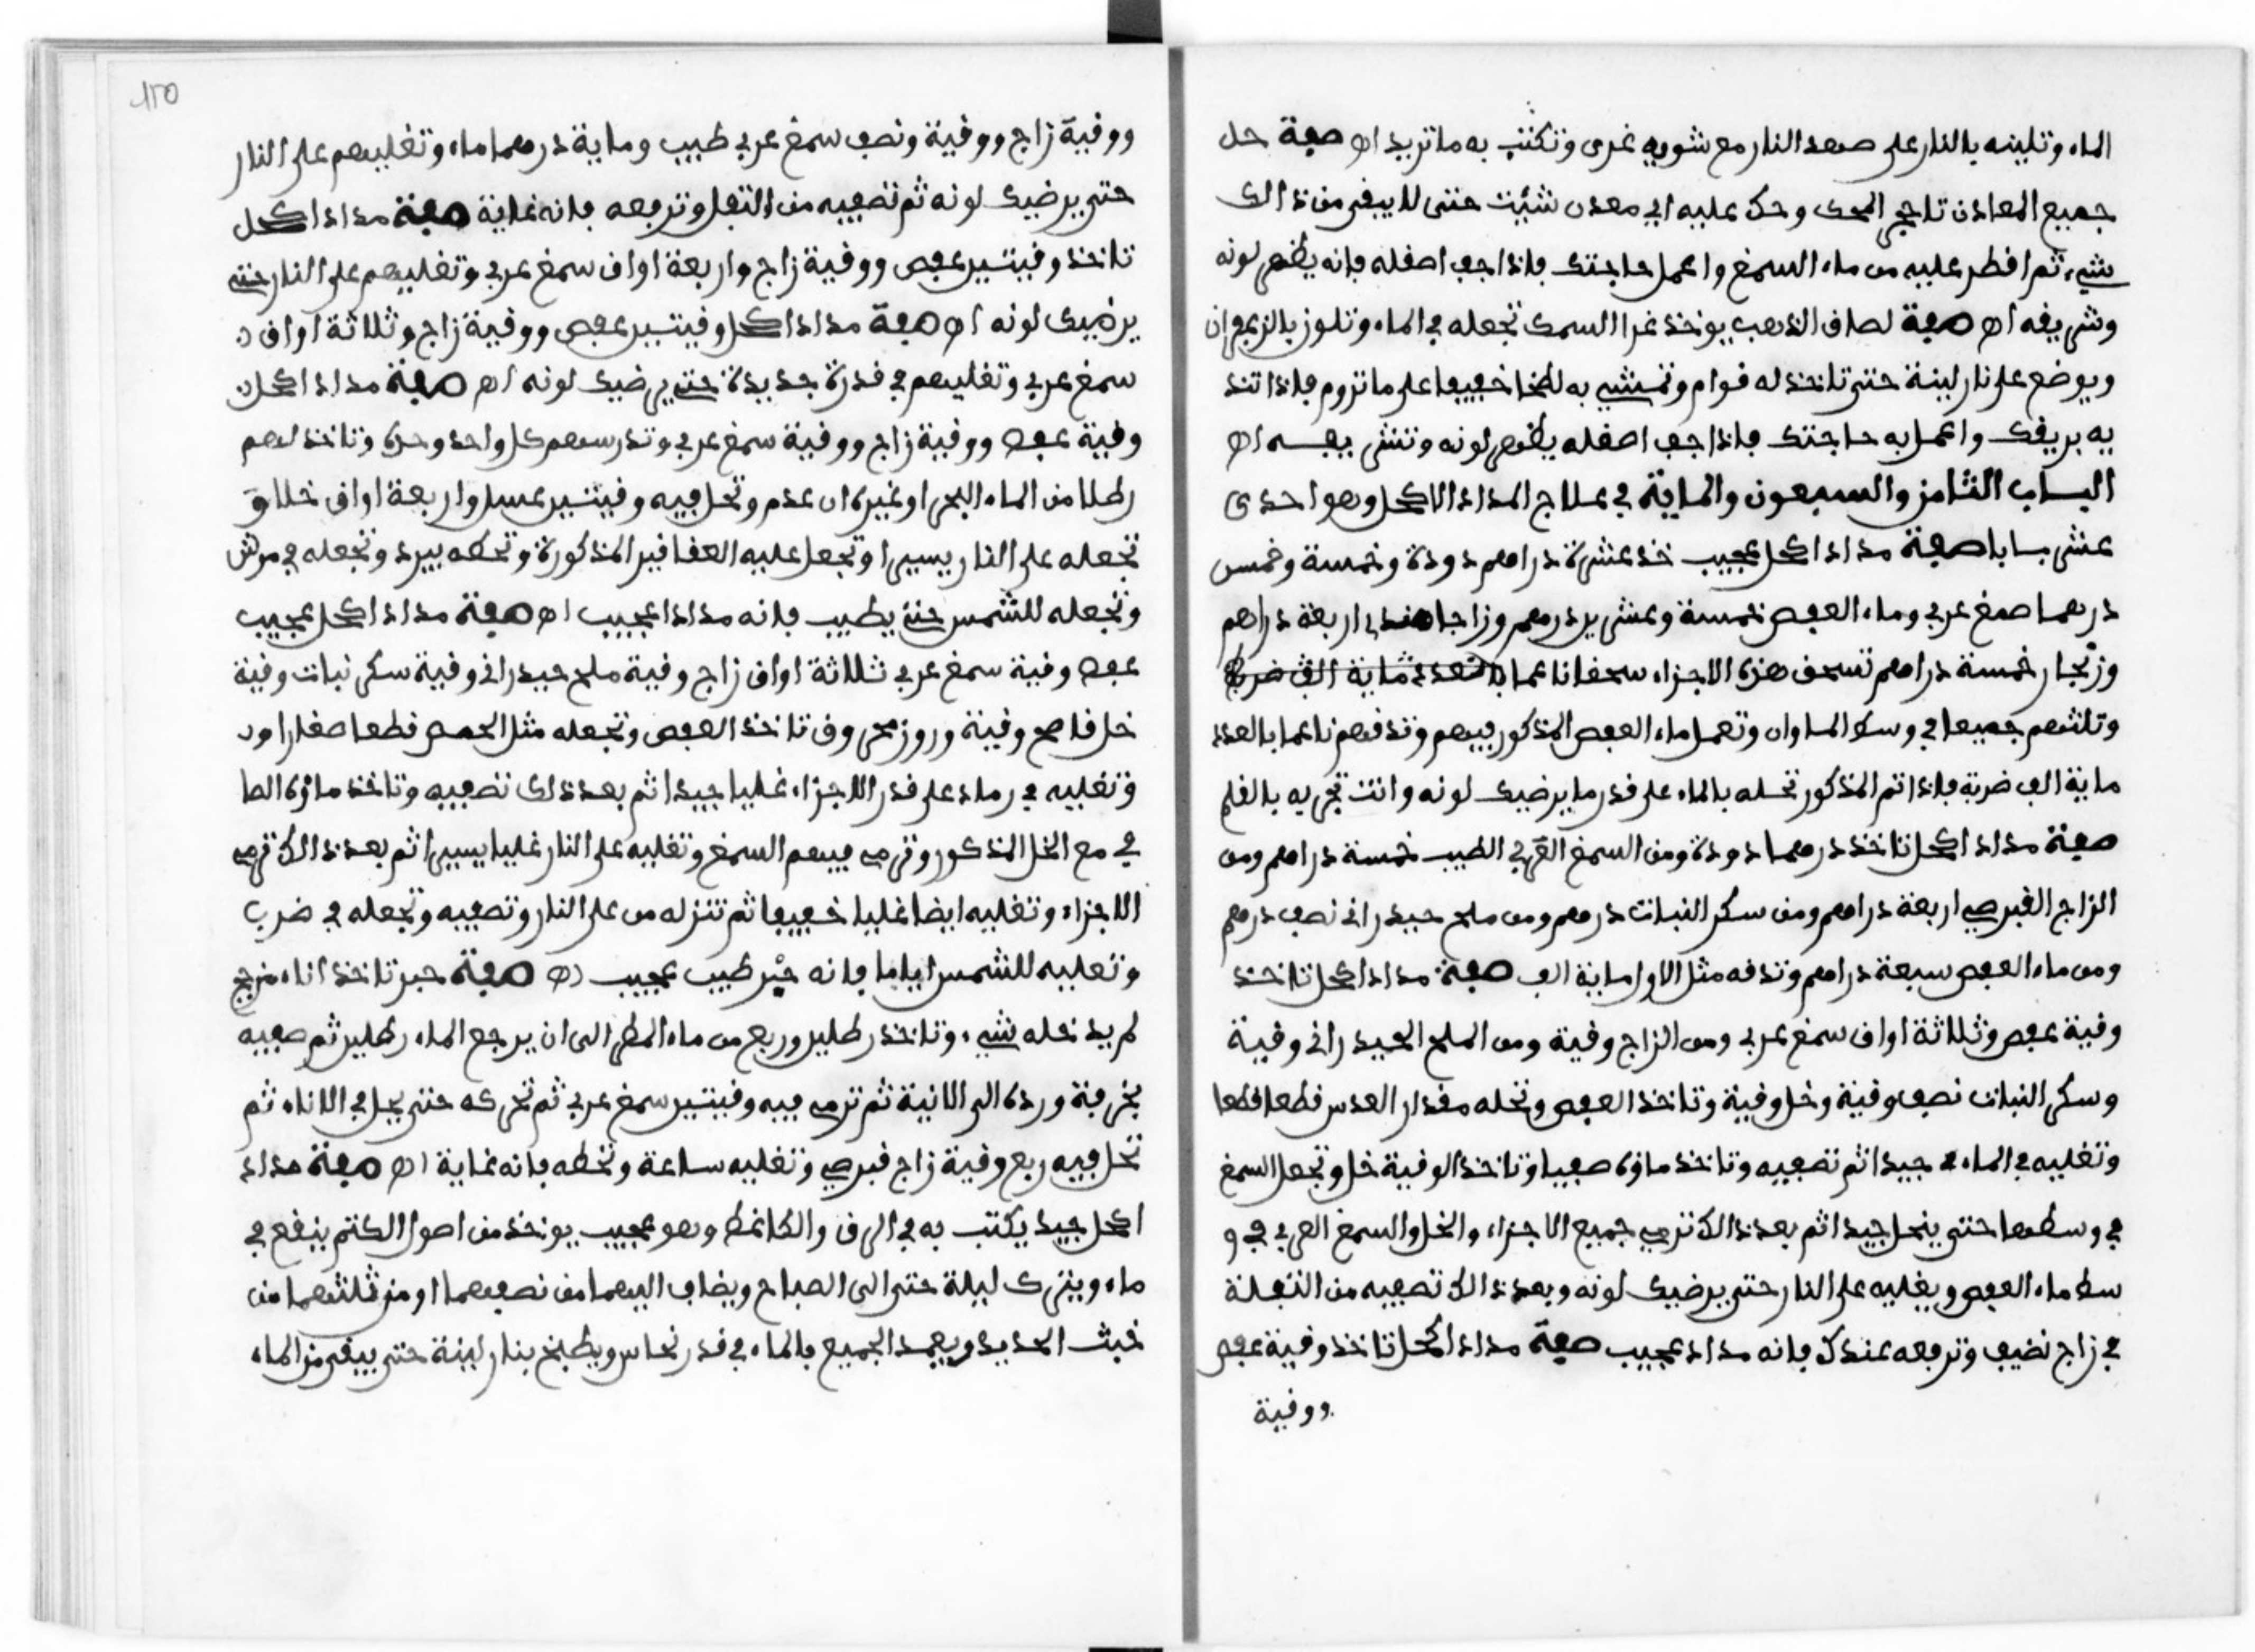 الماء وتلينه بالنار على صهد النار مع شويه غرى وتكتب به ما تريد اه صفة حل
جميع المعادن تاجي المحك وحك عليه اي معدن شئت حتى لا يبقى من ذالك
شيء ثم اقطر عليه من ماء السمغ واعمل حاجتك فاذا جف اصقله فانه يظهر لونه
وتشريفه اه صفة لصاق الذهب يوخذ غرا السمك تجعله في الماء وتلوز بالزعفران
ويوضع على نار لينة حتى تاخذ له قوام وتمشي به لطخا خفيفا على ما تروم فاذا تند
يه بريقك واعمل به حاجتك فاذا جف اصقله يظهر لونه وتنشي بفسه اه
الباب الثامن والسبعون والماية في علاج المداد الاكحل وهو احدى
عشر بابا صفة مداد اكحل عجيب خذ عشرة دراهم دودة وخمسة وخمس
درهما صمغ عربي وماء العفص خمسة وعشرين درهم وزاجا هندي اربعة دراهم
وزنجار خمسة دراهم تسحق هزه الاجزاء سحقا ناعما بالعدد ماية الف ضربة
وتلتهم جميعا في وسط الماوان وتعمل ماء العفص المذكور فيهم وتدقهم ناعما بالعدد
ماية الف ضربة فاذا تم المذكور تحله بالماء على قدر ما يرضيك لونه وانت تجربه بالقلم
صفة مداد اكحل تاخذ درهما دودة ومن السمغ العربي الطيب خمسة دراهم ومن
الزاج القبرصي اربعة دراهم ومن سكر النبات درهم ومن ملح حيدراني نصف درهم
ومن ماء العفص سبعة دراهم وتدقه مثل الاول ماية الف صفة مداد اكحل تاخذ
وقية عفص وثلاثة اواق سمغ عربي ومن الزاج وقية ومن الملح الحيدراني وقية
وسكر النبات نصف وقية وخل وقية وتاخذ العفص وتحله مقدار العدس قطعا قطعا
وتغليه في الماء جيدا ثم تصفيه وتاخذ ماؤه صفيا وتاخذ الوقية خل وتجعل السمغ
في وسطها حتى ينحل جيدا ثم بعد ذالك ترمي جميع الاجزاء والخل والسمغ العربي في و
سط ماء العفص ويغليه على النار حتى يرضيك لونه وبعد ذالك تصفيه من الثفلة
في زاج نضيف وترفعه عندك فانه مداد عجيب صفة مداد اكحل تاخذ وقية عفص
ووقية
١٢٥
ووقية زاج ووقية ونصف سمغ عربي طيب وماية درهما ماء وتغليهم على النار
حتى يرضيك لونه ثم تصفيه من الثفل وترفعه فانه غاية صفة مداد اكحل
تاخذ وقيتين عفص ووقية زاج واربعة اواق سمغ عربي وتغليهم على النار حتى
يرضيك لونه اه صفة مداد اكحل وقيتين عفص ووقية زاج وثلاثة اواق
سمغ عربي وتغليهم في قدرة جديدة حتى يرضيك لونه اه صفة مداد اكحل
وقية عفص ووقية زاج ووقية سمغ عربي وتدرسهم كل واحد وحده وتاخذ لهم
رطلا من الماء البحر او غيره ان عدم وتحل فيه وقيتين عسل واربعة اواق خلاق
تجعله على النار يسيرا وتجعل عليه العقاقير المذكورة وتحطه يبرد وتجعله في مرش
وتجعله للشمس حتى يطيب فانه مدادا عجيب اه صفة مداد اكحل عجيب
عفص وقية سمغ عربي ثلاثة اواق زاج وقية ملح حيدراني وقية سكر نبات وقية
خل قاطح وقية وروز محروق تاخذ العفص وتجعله مثل الحمص قطعا صغارا ود
وتغليه في رماد على قدر الاجزاء غليا جيدا ثم بعد ذلك تصفيه وتاخذ ماؤه الصا
في مع الخل المذكور وترمي فيهم السمغ وتغليه على النار غليا يسيرا ثم بعد ذالك ترمي
الاجزاء وتغليه ايضا غليا خفيفا ثم تنزله من على النار وتصفيه وتجعله في ضرب
وتعليه للشمس اياما فانه حبر طيب عجيب اه صفة حبر تاخذ اناء مزجج
لم يدخله شيء وتاخذ رطلين وربع من ماء المطر الى ان يرجع الماء رطلين ثم صفيه
بخرقة ورده الى الانية ثم ترمي فيه وقيتين سمغ عربي ثم تحركه حتى يحل في الاناء ثم
تحل فيه ربع وقية زاج قبرصي وتغليه ساعة وتحطه فانه غاية اه صفة مداد
اكحل جيد يكتب به في الرق والكاغط وهو عجيب يوخذ من اصول الكتم ينقع في
ماء ويترك ليلة حتى الى الصباح ويضاف اليهما من نصفهما او من ثلثهما من
خبث الحديد ويعمد الجميع بالماء في قدر نحاس ويطبخ بنار لينة حتى يبقى من الماء